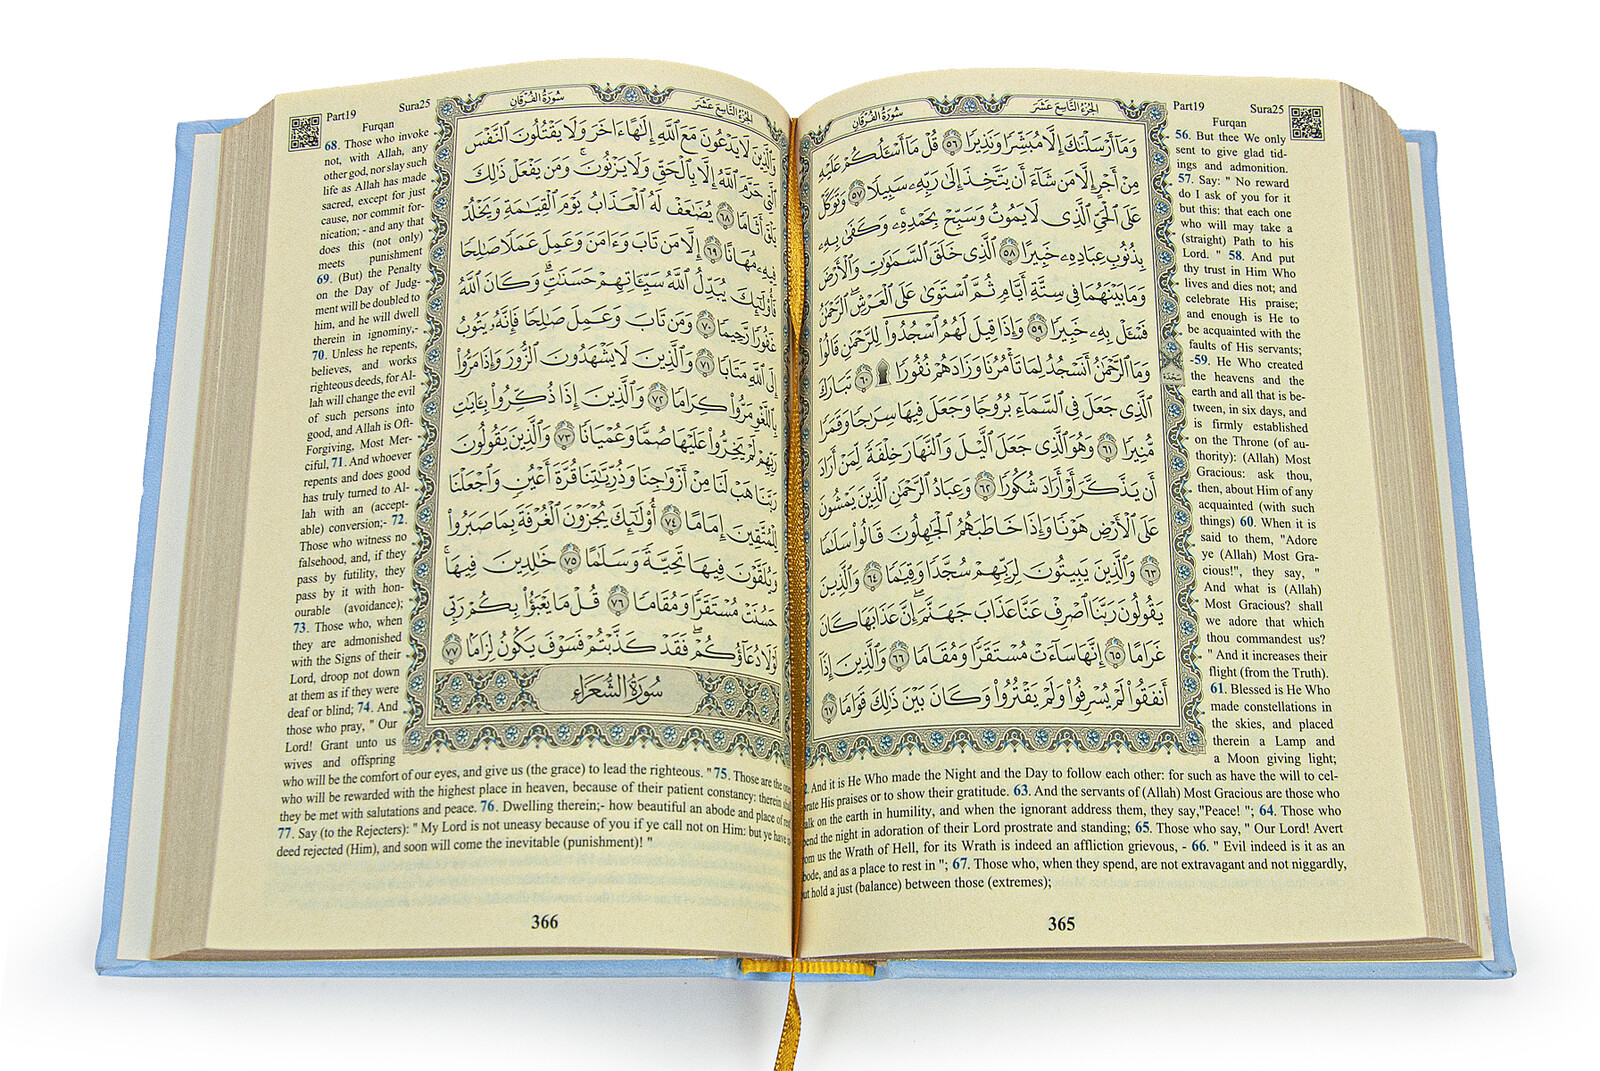 Part19 Sura25
Furqan
سُورَةُ الفُرْقَان
الجُزْءُ التَّاسِعَ عَشَرَ
وَمَآ أَرْسَلْنَٰكَ إِلَّا مُبَشِّرًا وَنَذِيرًا ٥٦ قُلْ مَآ أَسْـَٔلُكُمْ عَلَيْهِ
مِنْ أَجْرٍ إِلَّا مَن شَآءَ أَن يَتَّخِذَ إِلَىٰ رَبِّهِۦ سَبِيلًا ٥٧ وَتَوَكَّلْ
عَلَى ٱلْحَىِّ ٱلَّذِى لَا يَمُوتُ وَسَبِّحْ بِحَمْدِهِۦ وَكَفَىٰ بِهِۦ
بِذُنُوبِ عِبَادِهِۦ خَبِيرًا ٥٨ ٱلَّذِى خَلَقَ ٱلسَّمَٰوَٰتِ وَٱلْأَرْضَ
وَمَا بَيْنَهُمَا فِى سِتَّةِ أَيَّامٍ ثُمَّ ٱسْتَوَىٰ عَلَى ٱلْعَرْشِ ٱلرَّحْمَٰنُ
فَسْـَٔلْ بِهِۦ خَبِيرًا ٥٩ وَإِذَا قِيلَ لَهُمُ ٱسْجُدُوا۟ لِلرَّحْمَٰنِ قَالُوا۟
وَمَا ٱلرَّحْمَٰنُ أَنَسْجُدُ لِمَا تَأْمُرُنَا وَزَادَهُمْ نُفُورًا ۩ ٦٠ تَبَارَكَ
ٱلَّذِى جَعَلَ فِى ٱلسَّمَآءِ بُرُوجًا وَجَعَلَ فِيهَا سِرَٰجًا وَقَمَرًا
مُّنِيرًا ٦١ وَهُوَ ٱلَّذِى جَعَلَ ٱلَّيْلَ وَٱلنَّهَارَ خِلْفَةً لِّمَنْ أَرَادَ
أَن يَذَّكَّرَ أَوْ أَرَادَ شُكُورًا ٦٢ وَعِبَادُ ٱلرَّحْمَٰنِ ٱلَّذِينَ يَمْشُونَ
عَلَى ٱلْأَرْضِ هَوْنًا وَإِذَا خَاطَبَهُمُ ٱلْجَٰهِلُونَ قَالُوا۟ سَلَٰمًا
٦٣ وَٱلَّذِينَ يَبِيتُونَ لِرَبِّهِمْ سُجَّدًا وَقِيَٰمًا ٦٤ وَٱلَّذِينَ
يَقُولُونَ رَبَّنَا ٱصْرِفْ عَنَّا عَذَابَ جَهَنَّمَ ۖ إِنَّ عَذَابَهَا كَانَ
غَرَامًا ٦٥ إِنَّهَا سَآءَتْ مُسْتَقَرًّا وَمُقَامًا ٦٦ وَٱلَّذِينَ إِذَآ
أَنفَقُوا۟ لَمْ يُسْرِفُوا۟ وَلَمْ يَقْتُرُوا۟ وَكَانَ بَيْنَ ذَٰلِكَ قَوَامًا ٦٧
سَجْدَة
56. But thee We only
sent to give glad tid-
ings and admonition.
57. Say: " No reward
do I ask of you for it
but this: that each one
who will may take a
(straight) Path to his
Lord. " 58. And put
thy trust in Him Who
lives and dies not; and
celebrate His praise;
and enough is He to
be acquainted with the
faults of His servants;
-59. He Who created
the heavens and the
earth and all that is be-
tween, in six days, and
is firmly established
on the Throne (of au-
thority): (Allah) Most
Gracious: ask thou,
then, about Him of any
acquainted (with such
things) 60. When it is
said to them, "Adore
ye (Allah) Most Gra-
cious!", they say, "
And what is (Allah)
Most Gracious? shall
we adore that which
thou commandest us?
" And it increases their
flight (from the Truth).
61. Blessed is He Who
made constellations in
the skies, and placed
therein a Lamp and
a Moon giving light;
And it is He Who made the Night and the Day to follow each other: for such as have the will to cel-
rate His praises or to show their gratitude. 63. And the servants of (Allah) Most Gracious are those who
alk on the earth in humility, and when the ignorant address them, they say,"Peace! "; 64. Those who
end the night in adoration of their Lord prostrate and standing; 65. Those who say, " Our Lord! Avert
om us the Wrath of Hell, for its Wrath is indeed an affliction grievous, - 66. " Evil indeed is it as an
bode, and as a place to rest in "; 67. Those who, when they spend, are not extravagant and not niggardly,
ut hold a just (balance) between those (extremes);
365
Part19 Sura25
Furqan
سُورَةُ الفُرْقَان
الجُزْءُ التَّاسِعَ عَشَرَ
وَٱلَّذِينَ لَا يَدْعُونَ مَعَ ٱللَّهِ إِلَٰهًا ءَاخَرَ وَلَا يَقْتُلُونَ ٱلنَّفْسَ
ٱلَّتِى حَرَّمَ ٱللَّهُ إِلَّا بِٱلْحَقِّ وَلَا يَزْنُونَ ۚ وَمَن يَفْعَلْ ذَٰلِكَ
يَلْقَ أَثَامًا ٦٨ يُضَٰعَفْ لَهُ ٱلْعَذَابُ يَوْمَ ٱلْقِيَٰمَةِ وَيَخْلُدْ
فِيهِۦ مُهَانًا ٦٩ إِلَّا مَن تَابَ وَءَامَنَ وَعَمِلَ عَمَلًا صَٰلِحًا
فَأُو۟لَٰٓئِكَ يُبَدِّلُ ٱللَّهُ سَيِّـَٔاتِهِمْ حَسَنَٰتٍ ۗ وَكَانَ ٱللَّهُ
غَفُورًا رَّحِيمًا ٧٠ وَمَن تَابَ وَعَمِلَ صَٰلِحًا فَإِنَّهُۥ يَتُوبُ
إِلَى ٱللَّهِ مَتَابًا ٧١ وَٱلَّذِينَ لَا يَشْهَدُونَ ٱلزُّورَ وَإِذَا مَرُّوا۟
بِٱللَّغْوِ مَرُّوا۟ كِرَامًا ٧٢ وَٱلَّذِينَ إِذَا ذُكِّرُوا۟ بِـَٔايَٰتِ
رَبِّهِمْ لَمْ يَخِرُّوا۟ عَلَيْهَا صُمًّا وَعُمْيَانًا ٧٣ وَٱلَّذِينَ يَقُولُونَ
رَبَّنَا هَبْ لَنَا مِنْ أَزْوَٰجِنَا وَذُرِّيَّٰتِنَا قُرَّةَ أَعْيُنٍ وَٱجْعَلْنَا
لِلْمُتَّقِينَ إِمَامًا ٧٤ أُو۟لَٰٓئِكَ يُجْزَوْنَ ٱلْغُرْفَةَ بِمَا صَبَرُوا۟
وَيُلَقَّوْنَ فِيهَا تَحِيَّةً وَسَلَٰمًا ٧٥ خَٰلِدِينَ فِيهَا ۚ
حَسُنَتْ مُسْتَقَرًّا وَمُقَامًا ٧٦ قُلْ مَا يَعْبَؤُا۟ بِكُمْ رَبِّى
لَوْلَا دُعَآؤُكُمْ ۖ فَقَدْ كَذَّبْتُمْ فَسَوْفَ يَكُونُ لِزَامًۢا ٧٧
سُورَةُ الشُّعَرَاءِ
68. Those who invoke
not, with Allah, any
other god, nor slay such
life as Allah has made
sacred, except for just
cause, nor commit for-
nication; - and any that
does this (not only)
meets punishment
69. (But) the Penalty
on the Day of Judg-
ment will be doubled to
him, and he will dwell
therein in ignominy,-
70. Unless he repents,
believes, and works
righteous deeds, for Al-
lah will change the evil
of such persons into
good, and Allah is Oft-
Forgiving, Most Mer-
ciful, 71. And whoever
repents and does good
has truly turned to Al-
lah with an (accept-
able) conversion;- 72.
Those who witness no
falsehood, and, if they
pass by futility, they
pass by it with hon-
ourable (avoidance);
73. Those who, when
they are admonished
with the Signs of their
Lord, droop not down
at them as if they were
deaf or blind; 74. And
those who pray, " Our
Lord! Grant unto us
wives and offspring
who will be the comfort of our eyes, and give us (the grace) to lead the righteous. " 75. Those are the
who will be rewarded with the highest place in heaven, because of their patient constancy: therein
they be met with salutations and peace. 76. Dwelling therein;- how beautiful an abode and place of
77. Say (to the Rejecters): " My Lord is not uneasy because of you if ye call not on Him: but ye have
deed rejected (Him), and soon will come the inevitable (punishment)! "
366